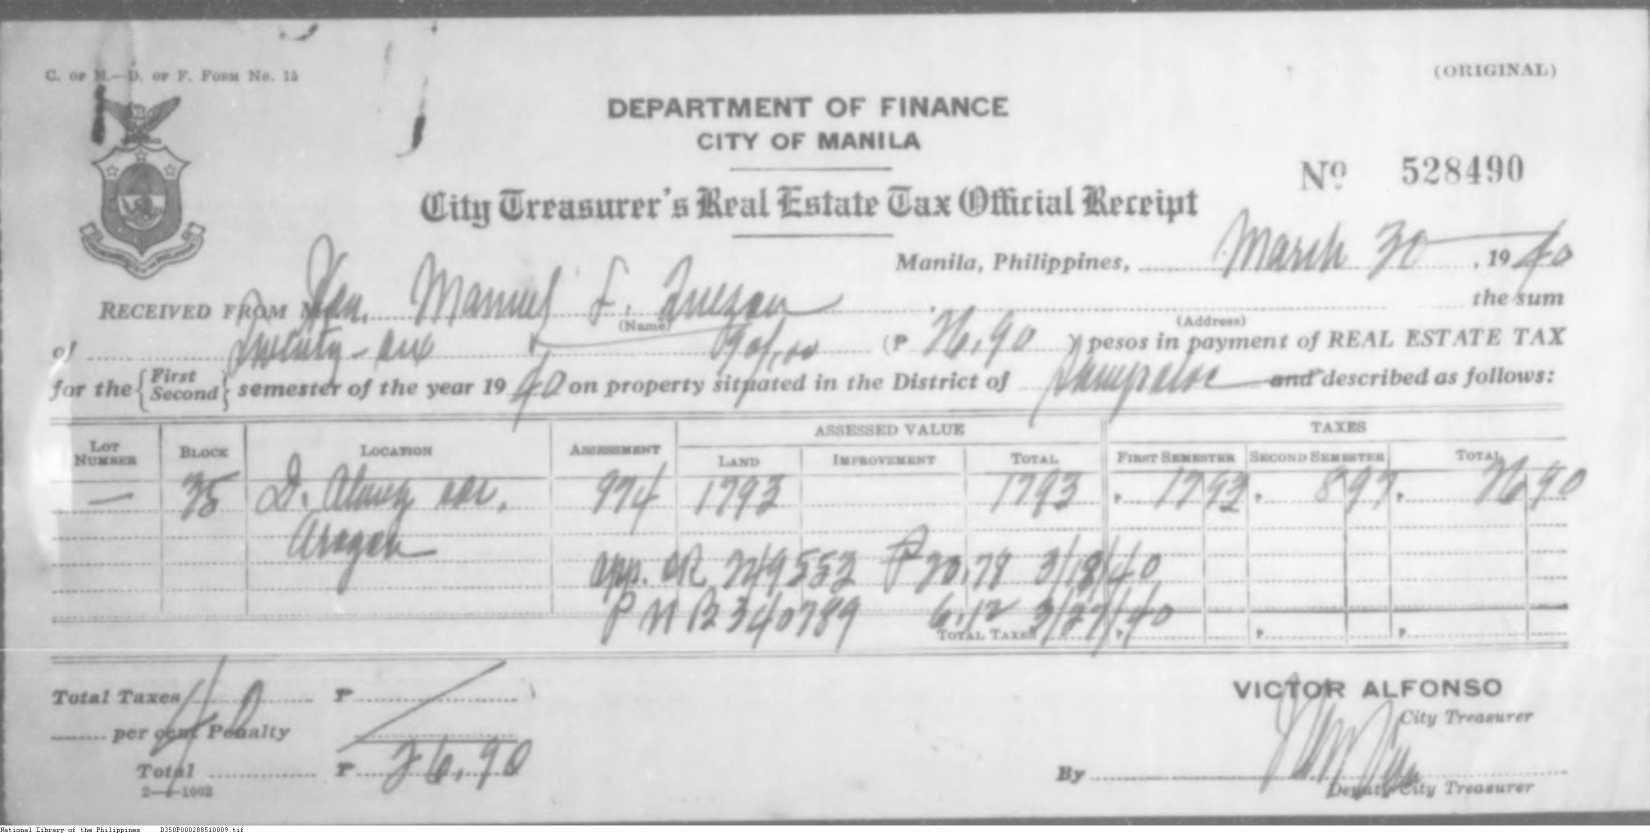 C. OF M.—D. OF F. FORM No. 15
(ORIGINAL)
DEPARTMENT OF FINANCE
CITY OF MANILA
No 528490
City Treasurer's Real Estate Tax Official Receipt
Manila, Philippines, March 30, 1940
RECEIVED FROM Hon. Manuel L. Quezon the sum
(Name) (Address)
of twenty-six & 90/100 (₱ 26.90) pesos in payment of REAL ESTATE TAX
for the { First Second } semester of the year 1940 on property situated in the District of Sampaloc and described as follows:
ASSESSED VALUE TAXES
LOT NUMBER BLOCK LOCATION ASSESSMENT LAND IMPROVEMENT TOTAL FIRST SEMESTER SECOND SEMESTER TOTAL
— 35 D. Alang cor. 974 1793 1793 ₱ 17 93 ₱ 8 97 ₱ 26 90
Aragon
app. OR 249553 ₱20.78 3/18/40
PNB 340789 6.12 3/27/40
TOTAL TAXES ₱ ₱ ₱
Total Taxes ₱
per cent Penalty
Total ₱ 26.90
2—1—1002
VICTOR ALFONSO
City Treasurer
By
Deputy City Treasurer
National Library of the Philippines D350P000288510009.tif